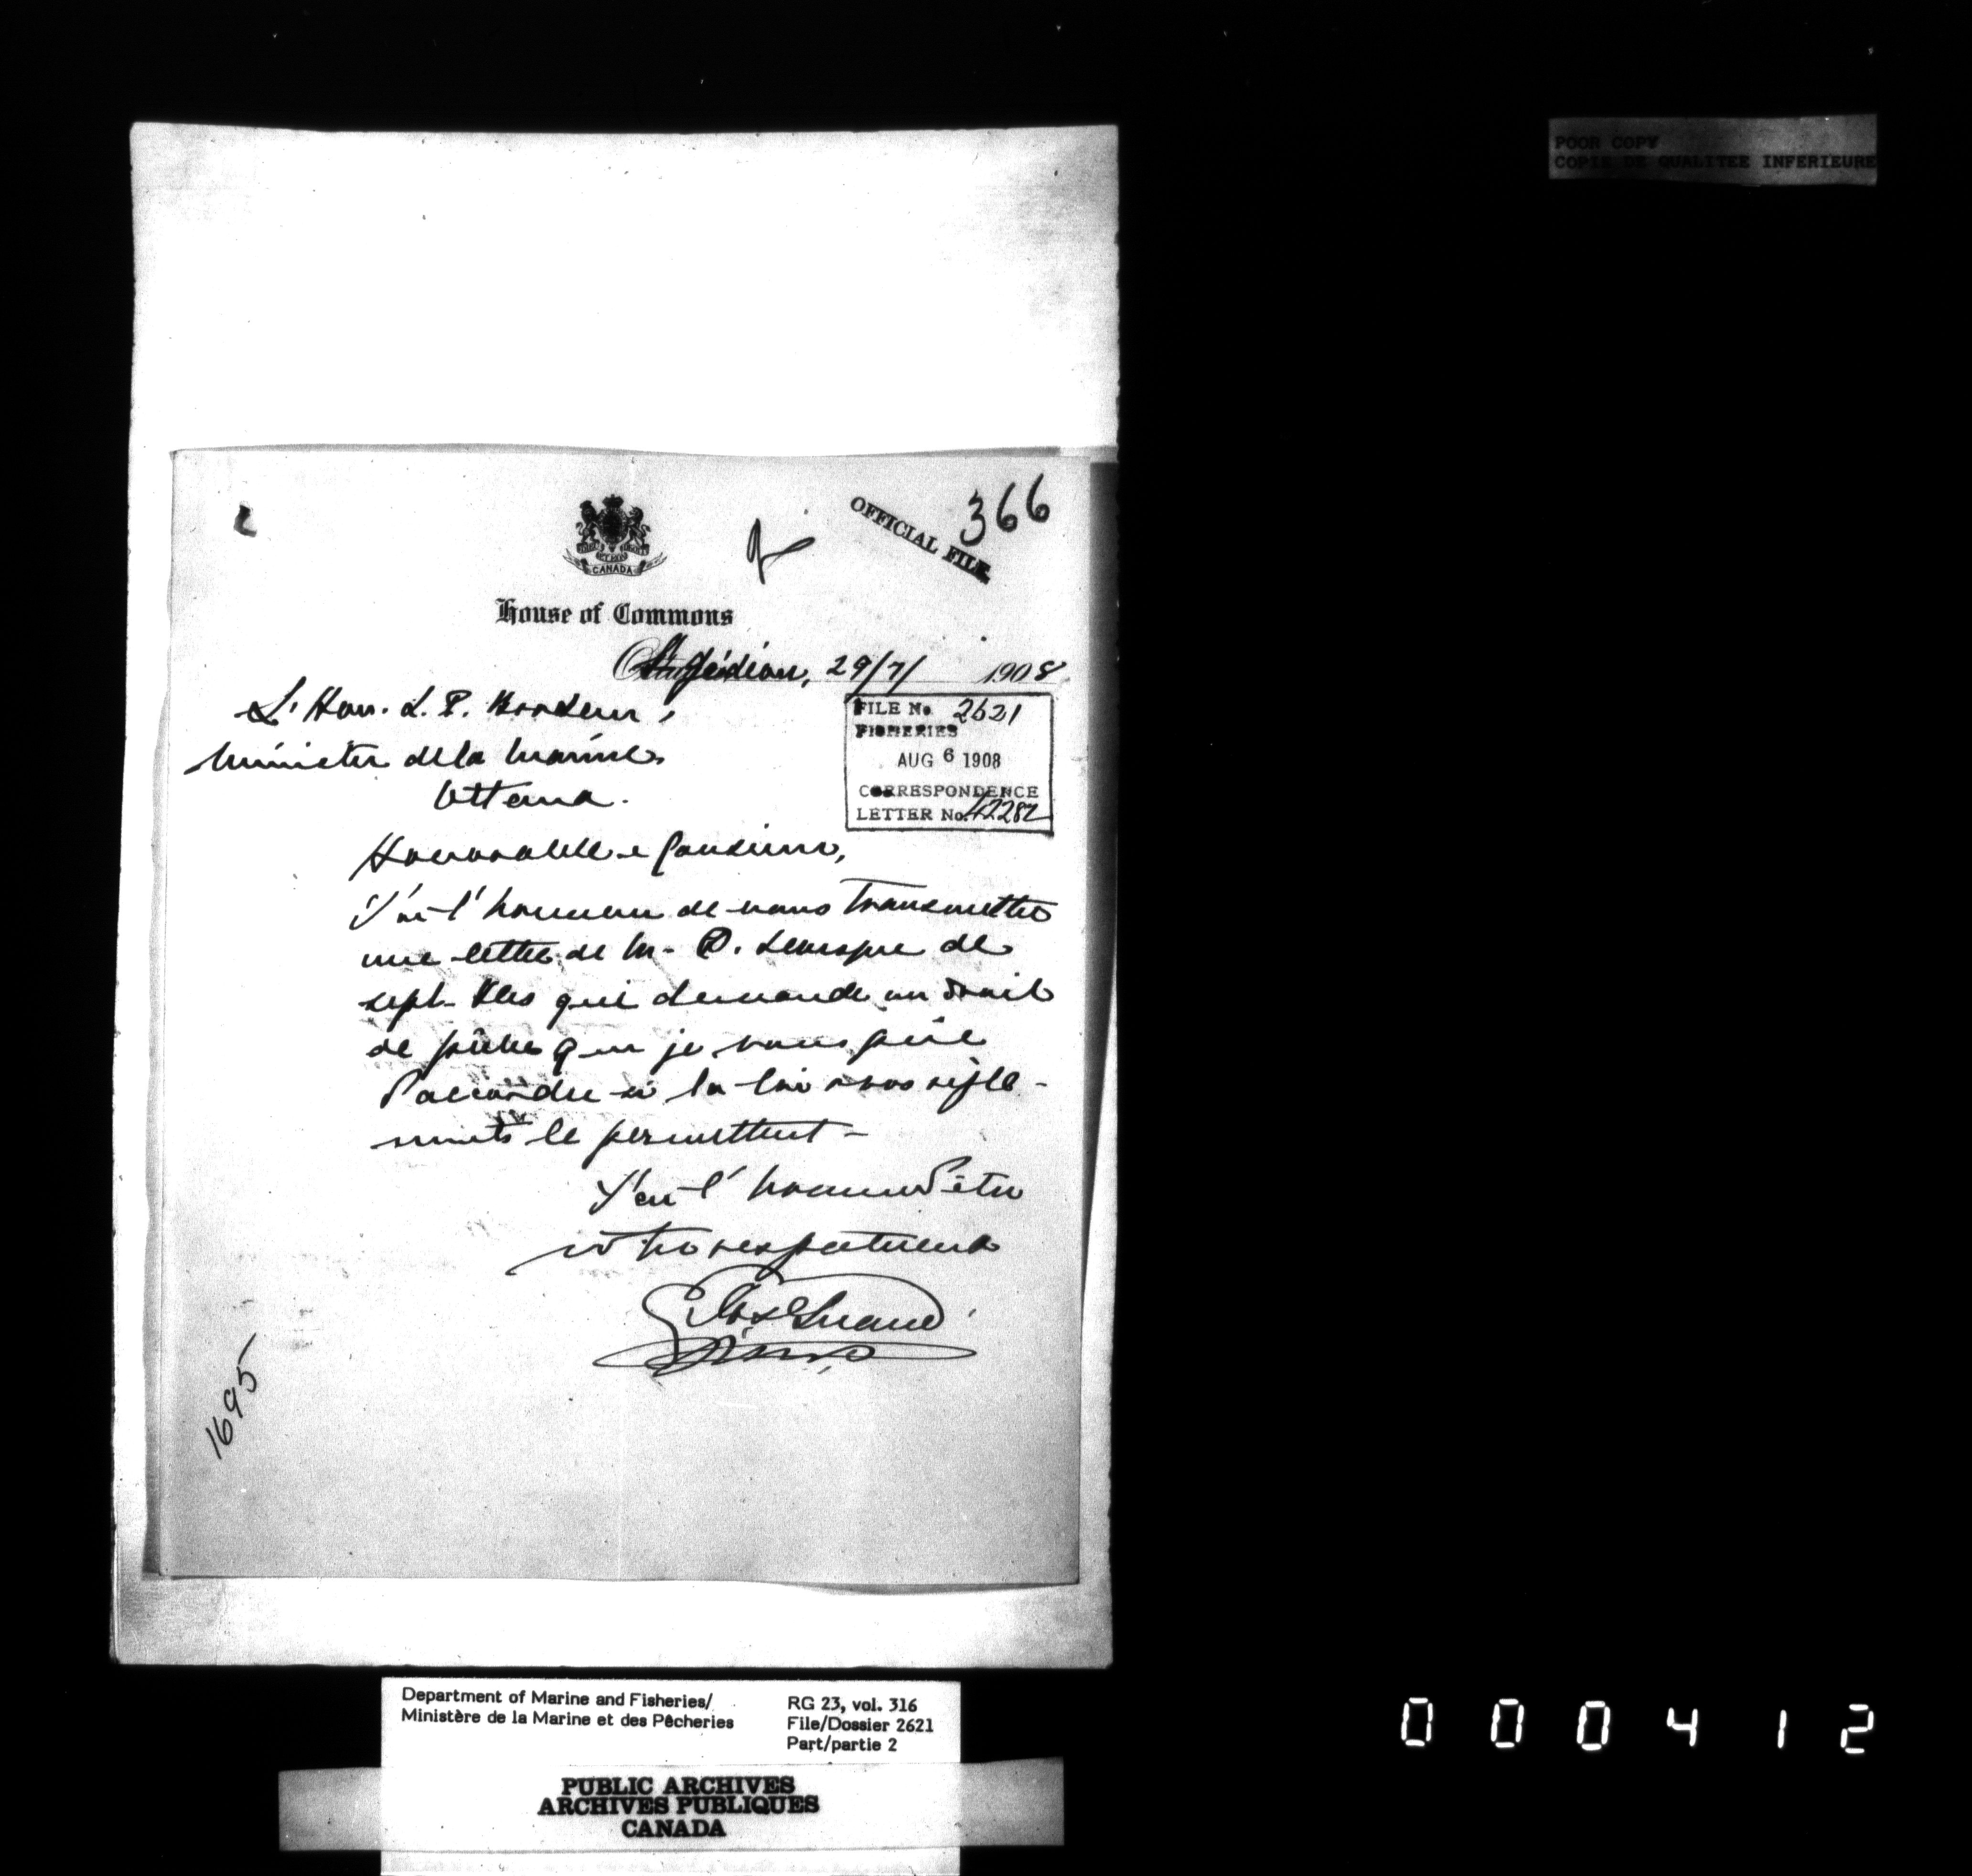 POOR COPY
COPIE DE QUALITEE INFERIEURE
366
OFFICIAL FILE
CANADA
House of Commons
St Gédéon, 29/7/ 1908
L'Hon. L. P. Brodeur,
Ministre de la Marine
Ottawa.
FILE No. 2621
FISHERIES
AUG 6 1908
CORRESPONDENCE
LETTER No. 42282
Honorable
J'ai l'honneur de vous transmettre
une lettre de M. D. Levesque de
Sept Iles qui demande un droit
de pêche que je vous prie
d'accorder si la loi & vos règle-
ments le permettent -
J'ai l'honneur d'être
votre respectueux
Jos Girard
1695
Department of Marine and Fisheries/
Ministère de la Marine et des Pêcheries
RG 23, vol. 316
File/Dossier 2621
Part/partie 2
PUBLIC ARCHIVES
ARCHIVES PUBLIQUES
CANADA
000412